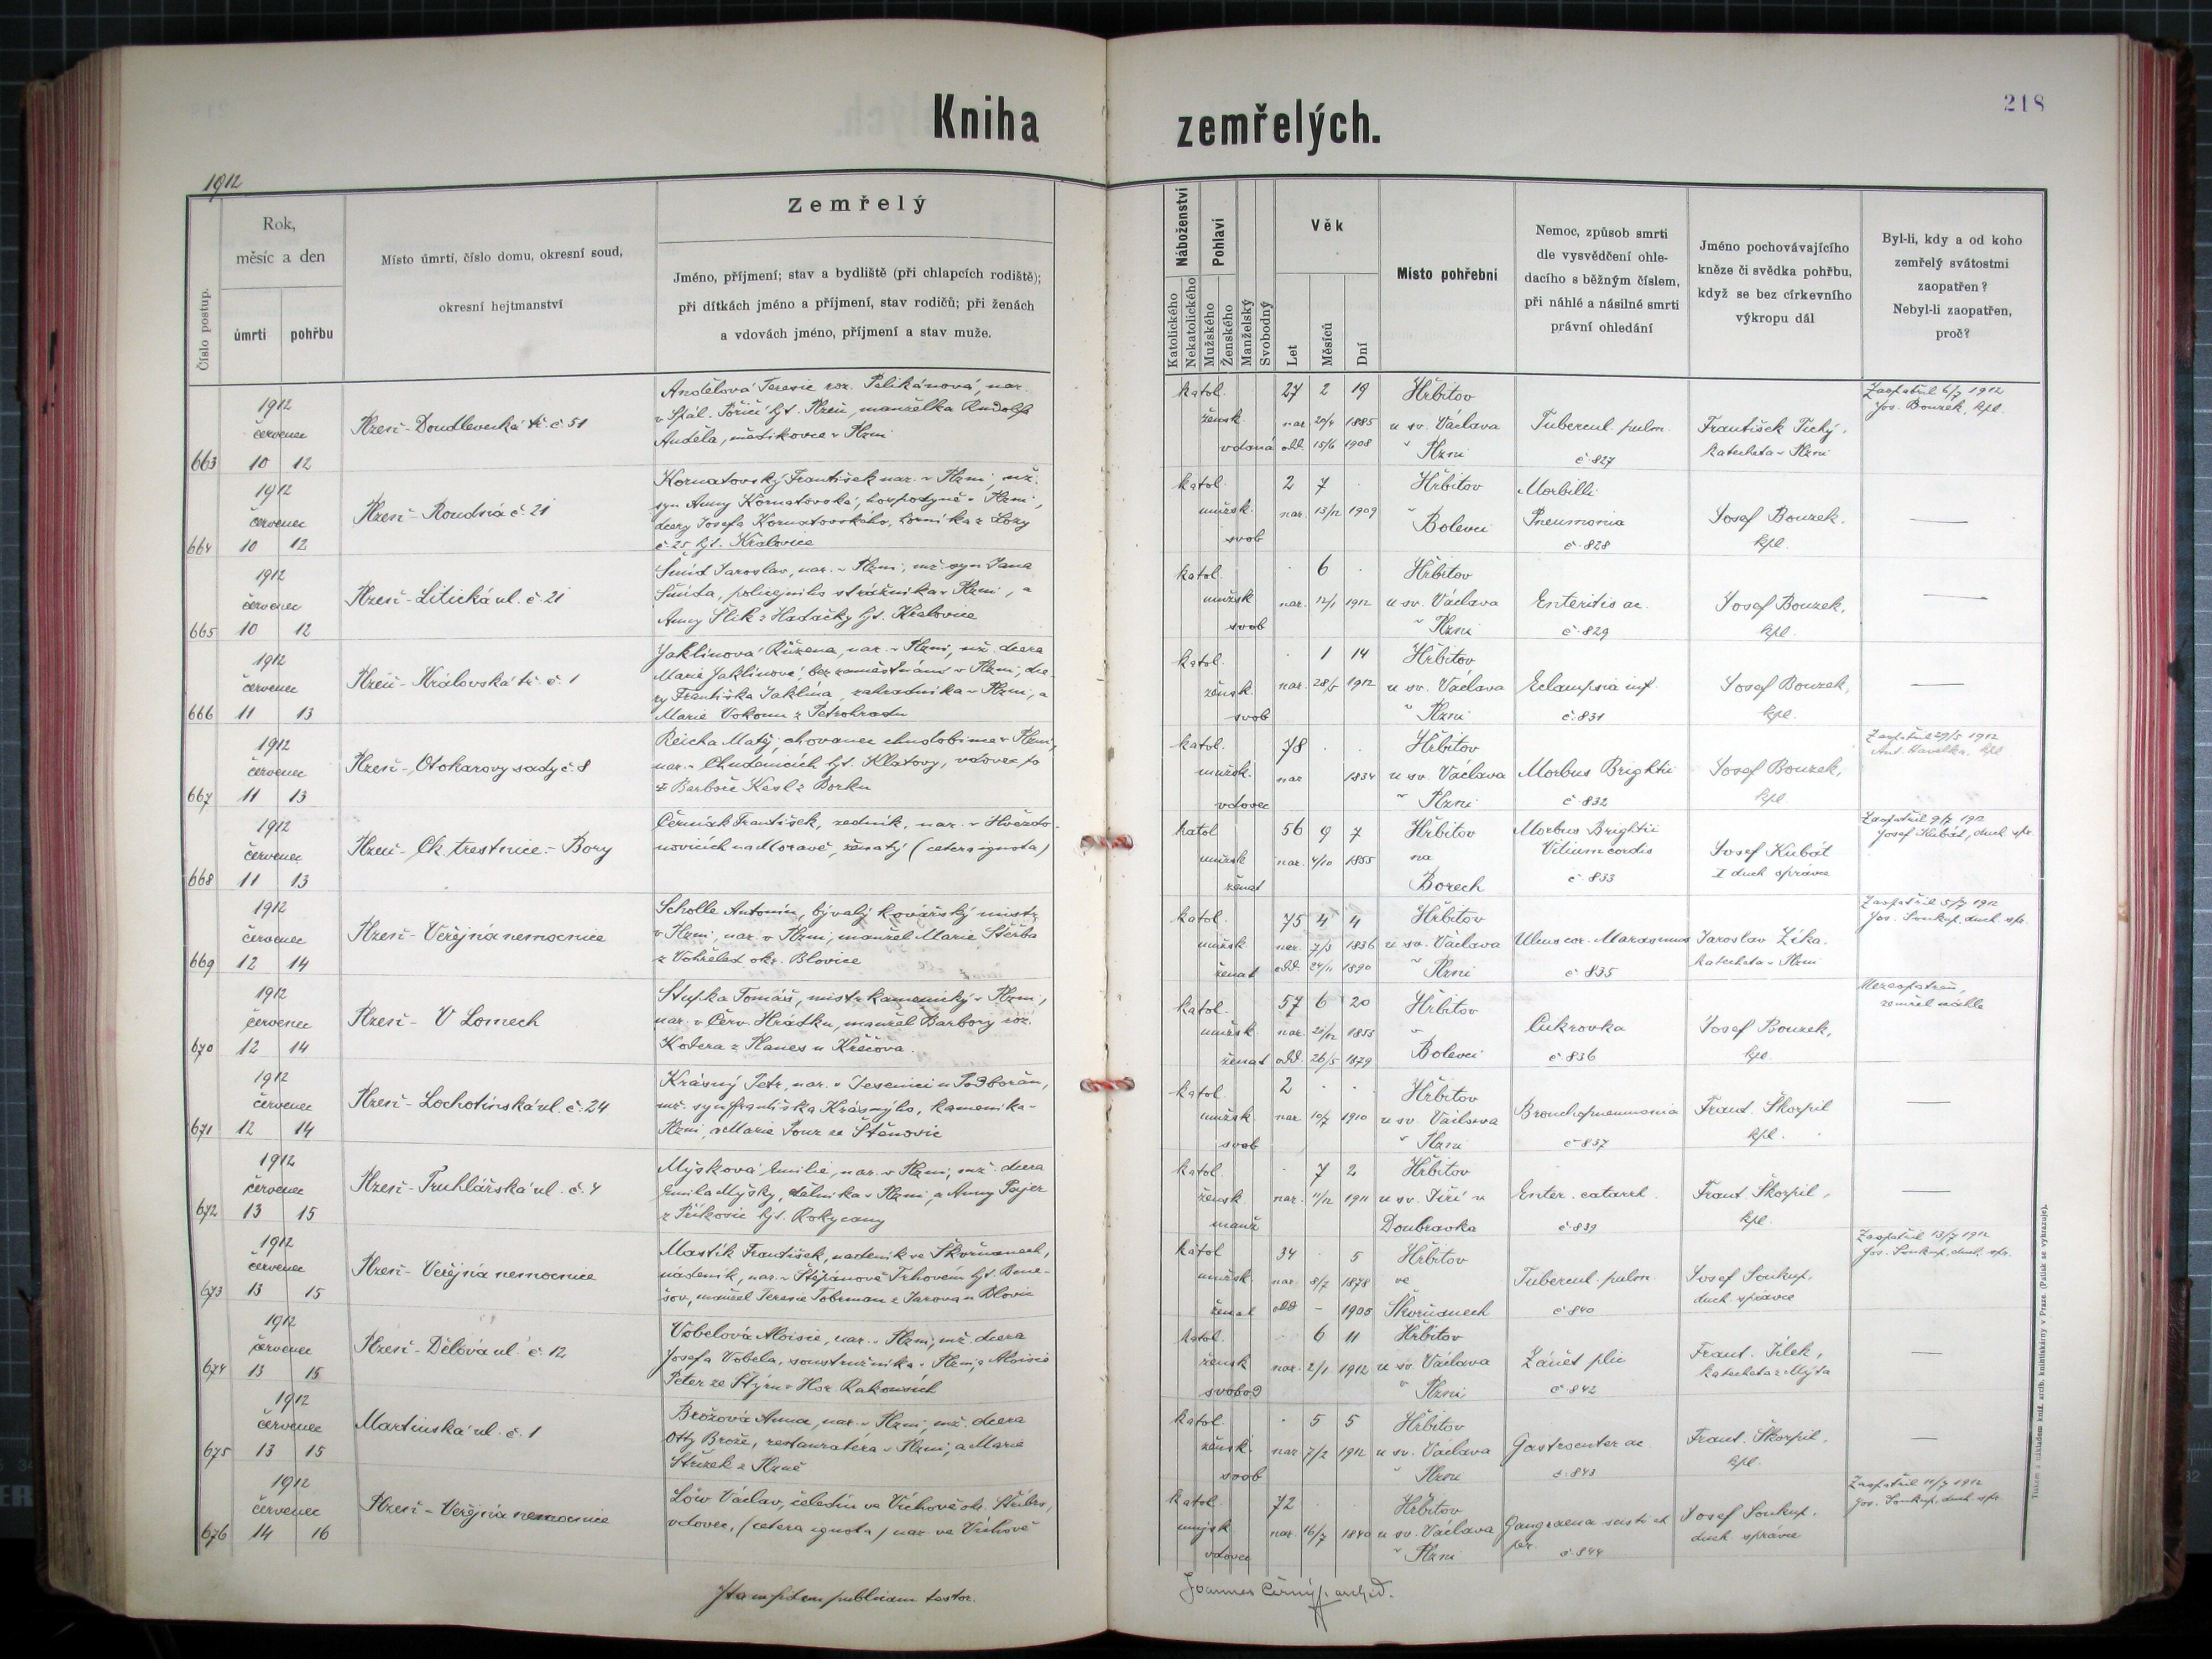 218
Kniha zemřelých.
1912
Číslo postup.
Rok,
měsíc a den
úmrtí
pohřbu
Místo úmrtí, číslo domu, okresní soud,
okresní hejtmanství
Zemřelý
Jméno, příjmení; stav a bydliště (při chlapcích rodiště);
při dítkách jméno a příjmení, stav rodičů; při ženách
a vdovách jméno, příjmení a stav muže.
Náboženství
Katolického
Nekatolického
Pohlaví
Mužského
Ženského
Manželský
Svobodný
Věk
Let
Měsíců
Dní
Místo pohřební
Nemoc, způsob smrti
dle vysvědčení ohle-
dacího s běžným číslem,
při náhlé a násilné smrti
právní ohledání
Jméno pochovávajícího
kněze či svědka pohřbu,
když se bez církevního
výkropu dál
Byl-li, kdy a od koho
zemřelý svátostmi
zaopatřen?
Nebyl-li zaopatřen,
proč?
663
1912
červenec
10 12
Plzeň - Doudlevecká tř. č. 51
Andělová Terezie roz. Pelikánová, nar.
v Spál. Poříčí hjt. Plzeň, manželka Rudolfa
Anděla, v Plzni
katol. 27 2 19
žensk. nar. 20/4 1885
vdaná odd. 15/6 1908
Hřbitov
u sv. Václava
v Plzni
Tubercul. pulm.
č. 827
František Tichý,
katecheta v Plzni
Zaopatřil 6/7 1912
Jos. Bouzek, kpl.
664
1912
červenec
10 12
Plzeň - Roudná č. 21
Kornatovský František nar. v Plzni, nž.
syn Anny Kornatovské, hospodyně v Plzni,
dcery Josefa Kornatovského, horníka z Lozy
č. 25 hjt. Kralovice
katol. 2 7 .
mužsk. nar. 13/12 1909
svob
Hřbitov
v Bolevci
Morbilli
Pneumonia
č. 828
Josef Bouzek,
kpl.
—
665
1912
červenec
10 12
Plzeň - Litická ul. č. 21
Šmíd Jaroslav, nar. v Plzni, mž. syn Jana
Šmída, policejního strážníka v Plzni, a
Anny Šlik z Hadačky hjt. Kralovice
katol. . 6 .
mužsk. nar. 12/1 1912
svob
Hřbitov
u sv. Václava
v Plzni
Enteritis ac.
č. 829
Josef Bouzek,
kpl.
—
666
1912
červenec
11 13
Plzeň - Královská tř. č. 1
Jaklínová Růžena, nar. v Plzni, nž. dcera
Marie Jaklínové, bez zaměstnání v Plzni, dce-
ry Františka Jaklína, zahradníka v Plzni, a
Marie Vokoun z Petrohradu
katol. . 1 14
žensk. nar. 28/5 1912
svob
Hřbitov
u sv. Václava
v Plzni
Eclampsia inf.
č. 831
Josef Bouzek,
kpl.
—
667
1912
červenec
11 13
Plzeň - Otokarovy sady č. 8
Reicha Matěj, chovanec chudobince v Plzni,
nar. v Chudenicích hjt. Klatovy, vdovec po
+ Barboře Kesl z Borku
katol. 78 . .
mužsk. nar 1834
vdovec
Hřbitov
u sv. Václava
v Plzni
Morbus Brightii
č. 832
Josef Bouzek,
kpl.
Zaopatřil 29/5 1912
Ant. Havelka, kpl
668
1912
červenec
11 13
Plzeň - Ck. trestnice - Bory
Černiak František, zedník, nar. v Hvězdo-
novicích na Moravě, ženatý (cetera ignota)
katol 56 9 7
mužsk nar. 4/10 1855
ženat
Hřbitov
na
Borech
Morbus Brightii
Vitium cordis
č. 833
Josef Kubát
I duch správce
Zaopatřil 9/7 1912
Josef Kubát, duch. spr.
669
1912
červenec
12 14
Plzeň - Veřejná nemocnice
Scholle Antonín, bývalý kovářský mistr
v Plzni, nar. v Plzni, manžel Marie Štěrba
z Vohřeled okr. Blovice
katol. 75 4 4
mužsk nar. 7/3 1836
ženat odd. 24/11 1890
Hřbitov
u sv. Václava
v Plzni
Ulcus cor. Marasmus
č. 835
Jaroslav Zíka,
katecheta v Plzni
Zaopatřil 5/7 1912
Jos. Soukup, duch. spr.
670
1912
červenec
12 14
Plzeň - V Lomech
Stupka Tomáš, mistr kamenický v Plzni,
nar. v Červ. Hrádku, manžel Barbory roz.
Kodera z Planes u Křečova.
katol. 57 6 20
mužsk. nar. 21/12 1853
ženat odd. 26/5 1879
Hřbitov
v
Bolevci
Cukrovka
č. 836
Josef Bouzek,
kpl.
Nezaopatřen,
zemřel náhle
671
1912
červenec
12 14
Plzeň - Lochotínská ul. č. 24
Krásný Petr, nar. v Jesenici u Podbořan,
mž. syn Františka Krásného, kameníka v
Plzni, a Marie Pour ze Štěnovic
katol. 2 . .
mužsk. nar. 10/7 1910
svob
Hřbitov
u sv. Václava
v Plzni
Bronchopneumonia
č. 837
Frant. Škorpil
kpl.
—
672
1912
červenec
13 15
Plzeň - Truhlářská ul. č. 4
Myšková Emilie, nar. v Plzni, mž. dcera
Emila Myšky, dělníka v Plzni, a Anny Pajer
z Příkosic hjt. Rokycany
katol. . 7 2
žensk. nar. 11/12 1911
manž
Hřbitov
u sv. Jiří u
Doubravka
Enter. catarrh.
č. 839
Frant. Škorpil,
kpl.
—
673
1912
červenec
13 15
Plzeň - Veřejná nemocnice
Mastík František, nádeník ve Skvrňanech,
nádeník, nar. v Štěpánově Trhovém hjt. Bene-
šov, manžel Terezie Tobrman z Jarova u Blovic
katol 34 . 5
mužsk. nar. 8/7 1878
ženat odd - 1905
Hřbitov
ve
Skvrňanech
Tubercul. pulm.
č. 840
Josef Soukup,
duch. správce
Zaopatřil 13/7 1912
Jos. Soukup, duch. spr.
674
1912
červenec
13 15
Plzeň - Dělová ul. č. 12
Vobelová Aloisie, nar. v Plzni, mž. dcera
Josefa Vobela, soustružníka v Plzni, a Aloisie
Peter ze Štýru v Hor. Rakousích
katol. . 6 11
žensk nar. 2/1 1912
svobod
Hřbitov
u sv. Václava
v Plzni
Zánět plic
č. 842
Frant. Jílek,
katecheta z Mýta
—
675
1912
červenec
13 15
Martinská ul. č. 1
Brožová Anna, nar. v Plzni, mž. dcera
Otty Brože, restauratéra v Plzni, a Marie
Střízek z Plzně
katol. . 5 5
žensk. nar. 7/2 1912
svob
Hřbitov
u sv. Václava
v Plzni
Gastroenter ac.
č. 843
Frant. Škorpil,
kpl.
—
676
1912
červenec
14 16
Plzeň - Veřejná nemocnice
Löw Václav, čeledín ve Víchově ok. Stříbro,
vdovec, (cetera ignota) nar. ve Víchově
katol. 72 . .
mužsk nar. 16/7 1840
vdovec
Hřbitov
u sv. Václava
v Plzni
Gangraena
č. 844
Josef Soukup,
duch. správce
Zaopatřil 11/7 1912
Jos. Soukup, duch. spr.
Ita in fidem publicam testor.
Joannes Černý, archid.
Tiskem i nákladem kníž. arcib. knihtiskárny v Praze. (Padísk se vyhrazuje).